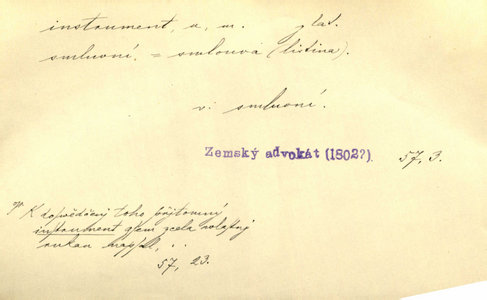 instrument, u, m. z lat.
smluvní. = smlouvá (listina).
v: smluvní.
Zemský advokát (1802?). 57, 3.
K dopvědčený toho přjtomní
instrument gsem zcela wlastnj
rukau napsal, ..
57, 23.